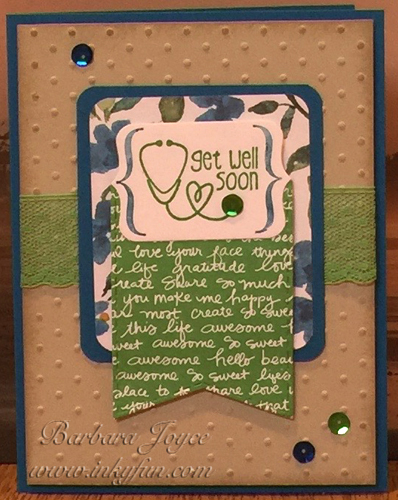 get well
soon
love your face things
life gratitude love
create share so much
you make me happy
am most create so sweet
this life awesome
sweet awesome so sweet
awesome hello beau
awesome so sweet lyes
place to share love
your
that
Barbara Joyce
www.inkyfun.com